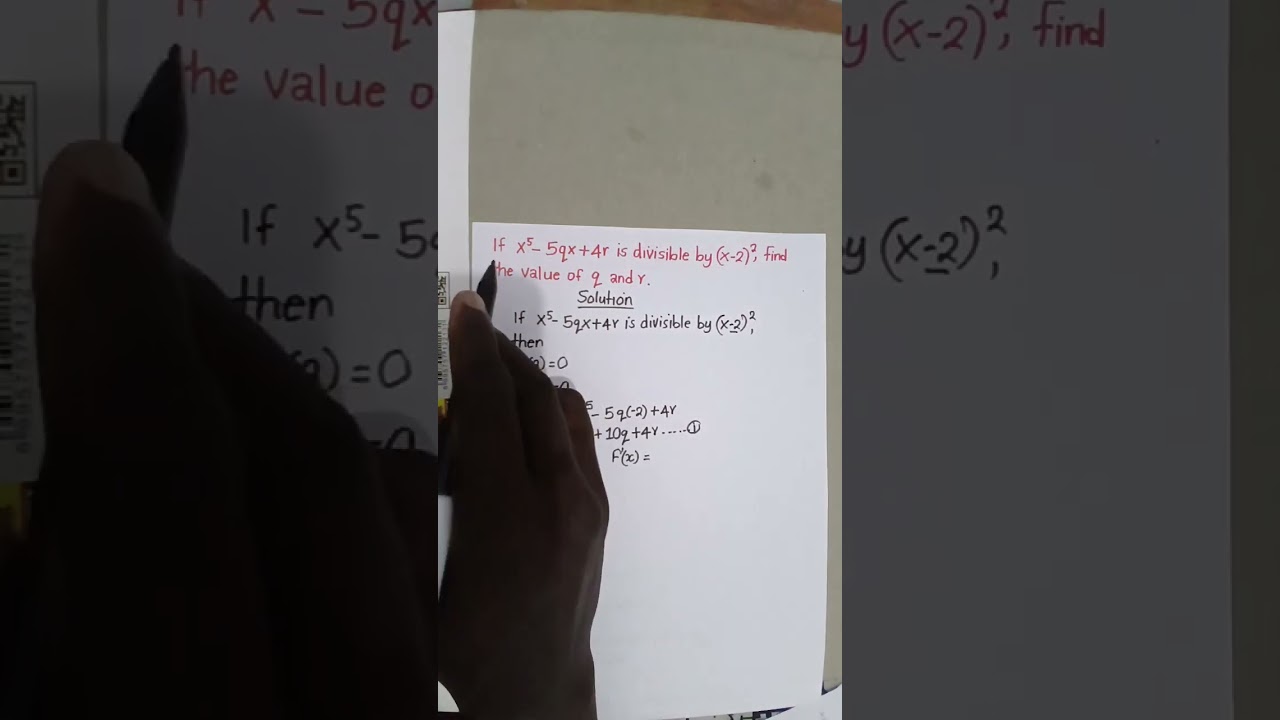 If x⁵ - 5qx + 4r is divisible by (x-2)², find
the value of q and r.
Solution
If x⁵ - 5qx + 4r is divisible by (x-2)²,
then
=0
=0
⁵ - 5q(-2) + 4r
+ 10q + 4r ..... ①
F'(x) =